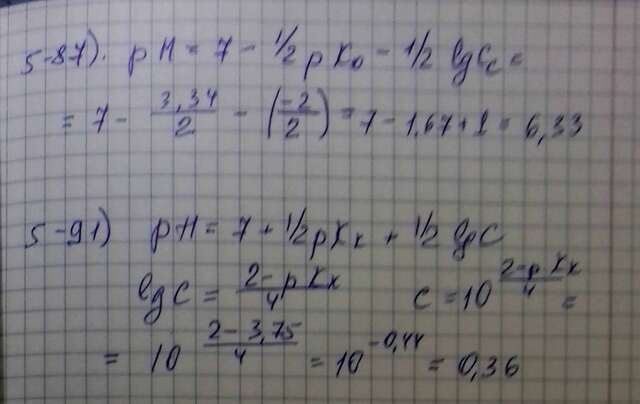 5-87). pH = 7 - 1/2 pK₀ - 1/2 lgCc =
= 7 - 3,34/2 - (-2/2) = 7 - 1,67 + 1 = 6,33
5-91) pH = 7 + 1/2 pKк + 1/2 lgC
lgC = 2-pKк/4 C = 10^(2-pKк/4) =
= 10^(2-3,75/4) = 10^(-0,44) = 0,36